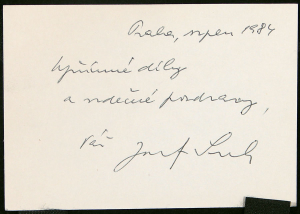 Praha, srpen 1984
Upřímné díky
a srdečné pozdravy,
Váš Josef Suk